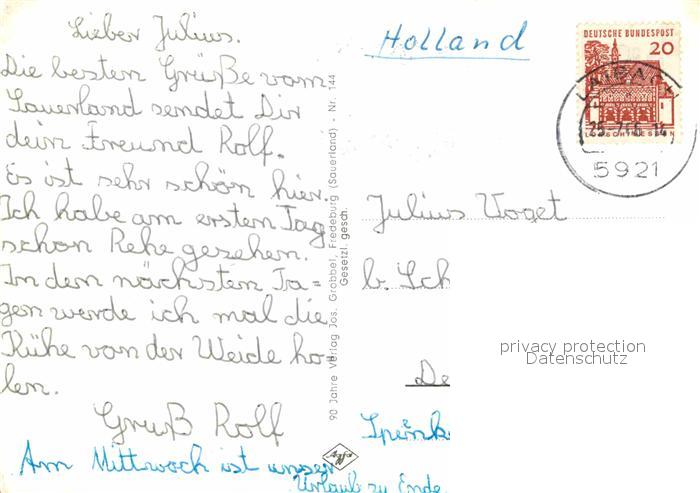 Lieber Julius.
Die besten Grüße vom
Sauerland sendet Dir
dein Freund Rolf.
Es ist sehr schön hier.
Ich habe am ersten Tag
schon Rehe gesehen.
In den nächsten Ta=
gen werde ich mal die
Kühe von der Weide ho-
len.
Gruß Rolf
Am Mittwoch ist unser
Urlaub zu Ende
90 Jahre Verlag Jos. Grobbel, Fredeburg (Sauerland) - Nr. 144
Gesetzl. gesch.
Agfa
Holland
DEUTSCHE BUNDESPOST
20
5921
Julius Voget
b. Sch
De
privacy protection
Datenschutz